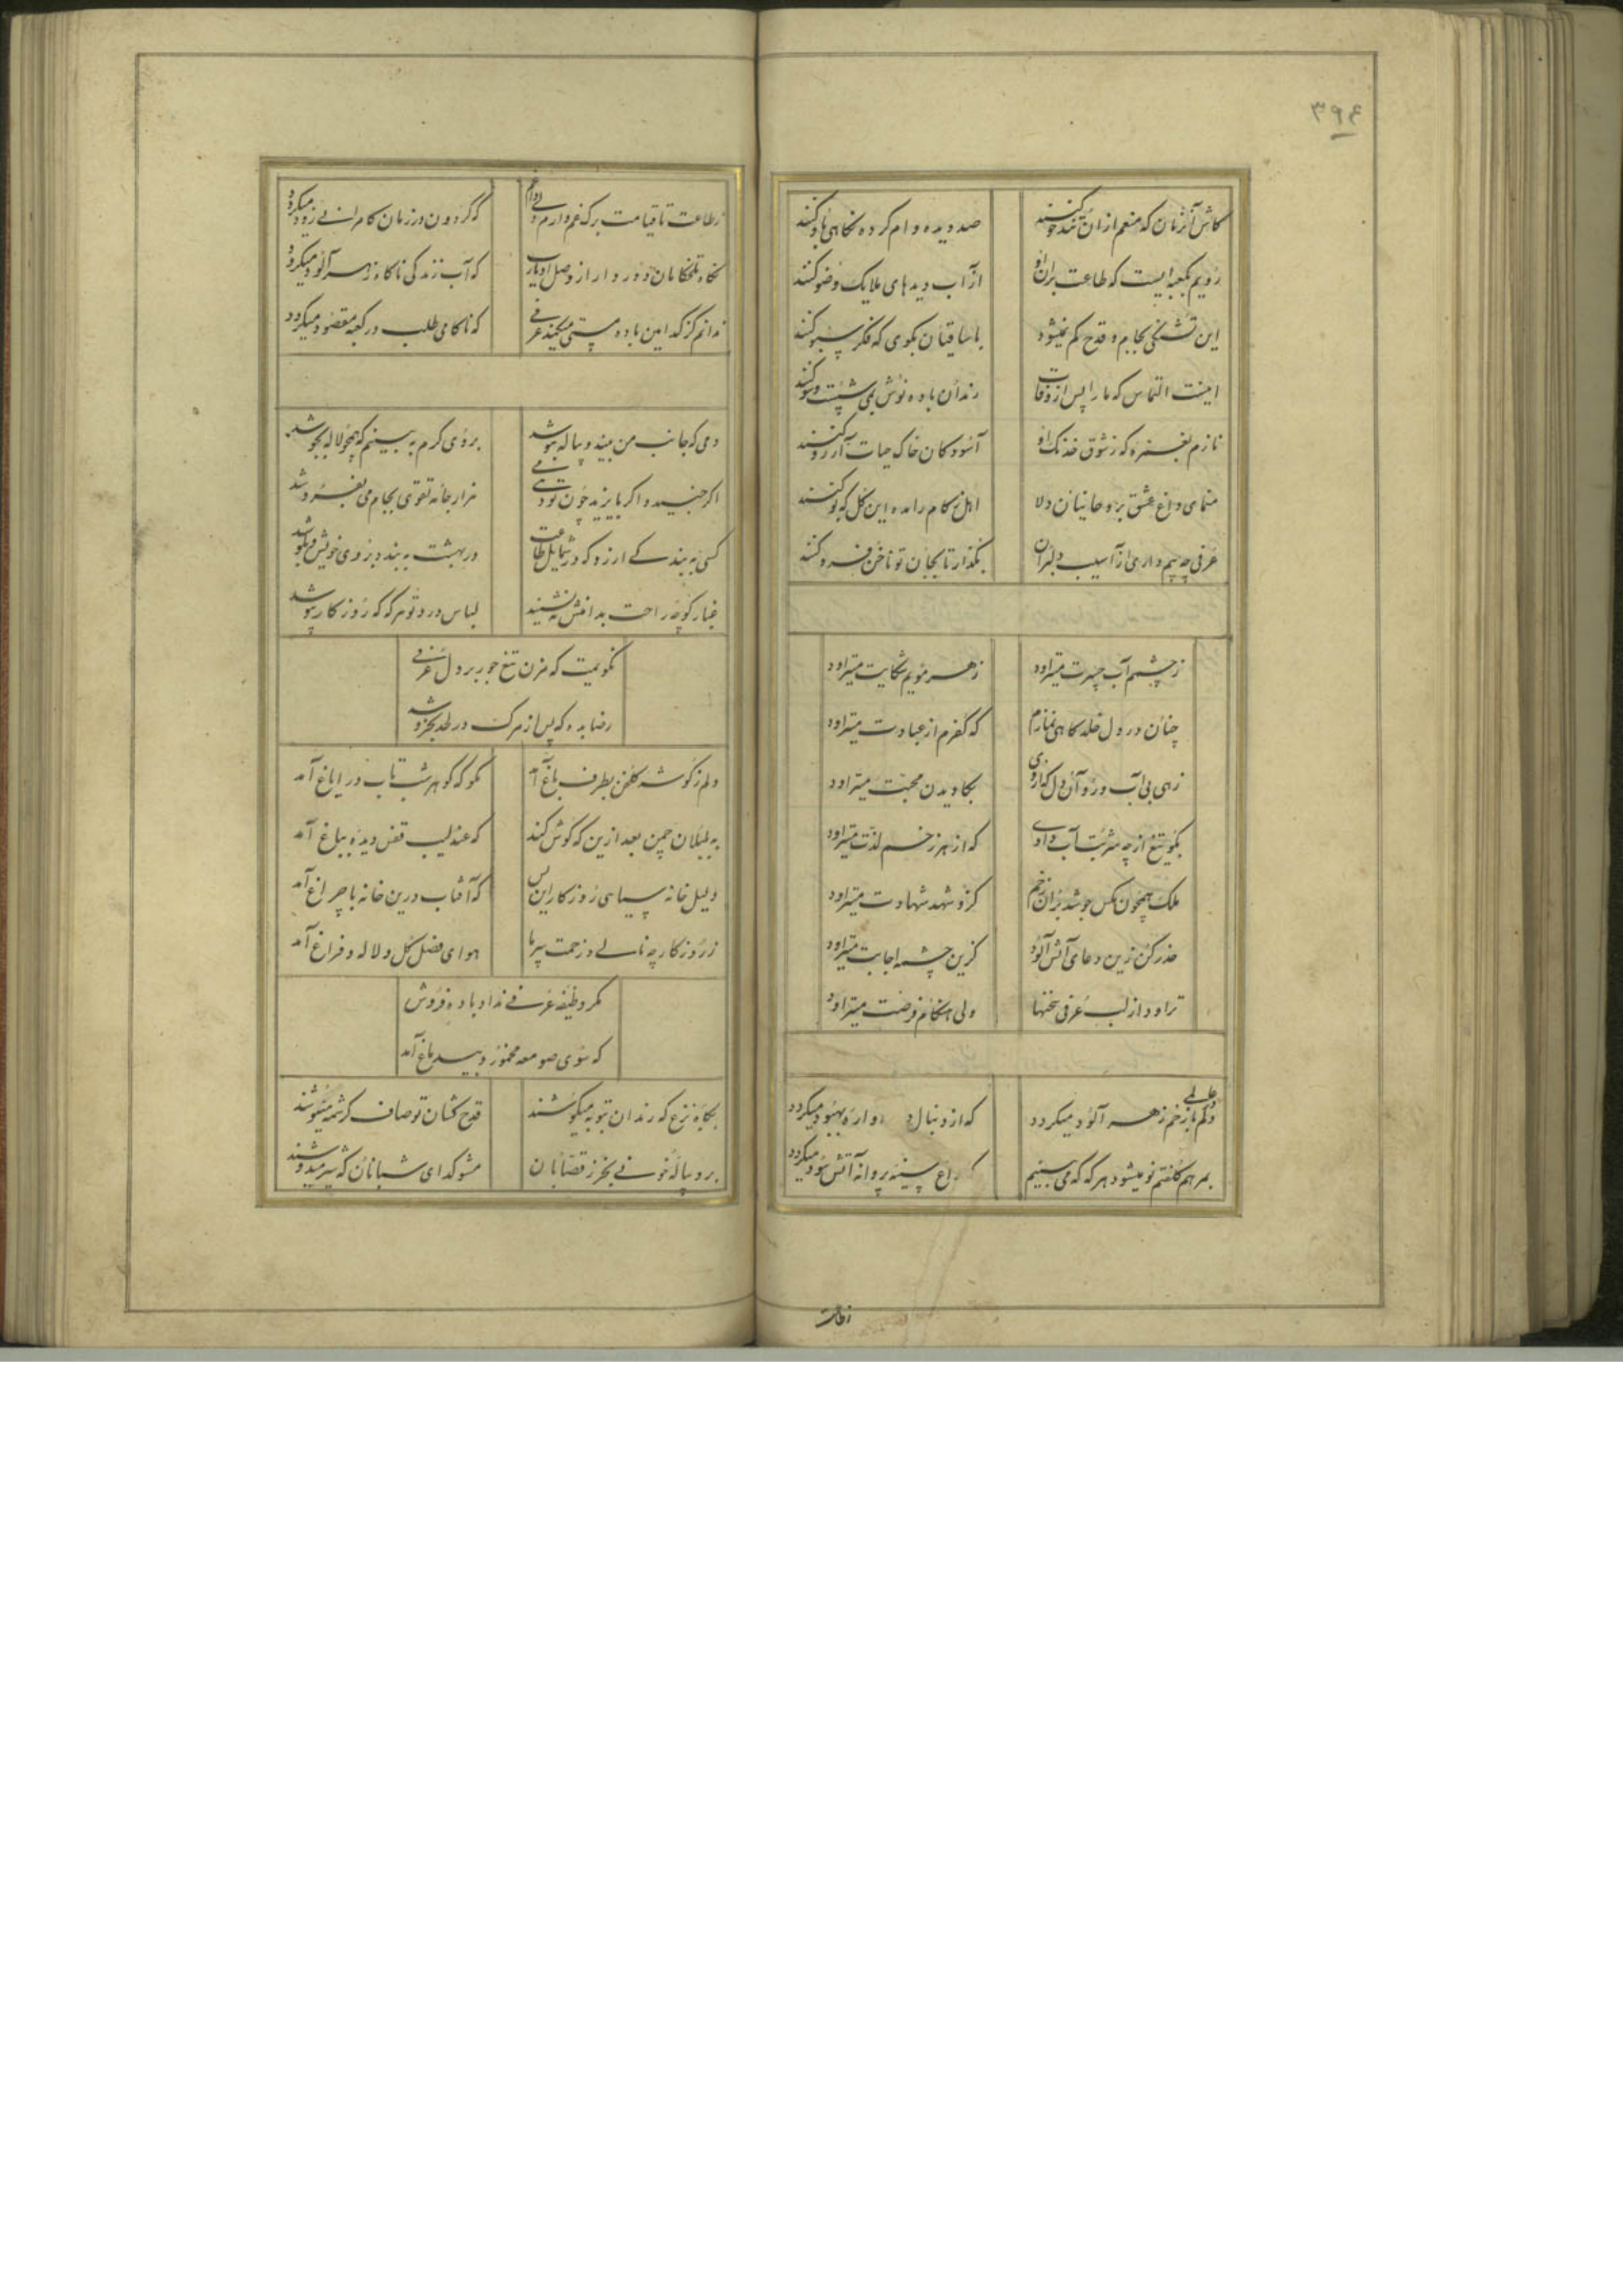 ۳۹۴
کاش آنزمان که منعم ازان تندخو کنند صد دیده وام کرده نگاهی باو کنند
رویم بکعبه ایست که طاعت بران او از آب دیدهای ملایک وضو کنند
این تشنگی بجام و قدح کم نمیشود با ساقیان بگوی که فکر سبو کنند
اینست التماس که ما را پس از وفات رندان باده نوش بمی شست و شو کنند
نازم بغمزه که ز شوق خدنک او آسودکان خاک حیات آرزو کنند
منمای داغ عشق بروحانیان دلا اهل زکام را مده این کل که بو کنند
عرفی چه بیم داری از آسیب دلبران بگذار تا بجان تو ناخن فرو کنند
ز چشمم آب حیرت میتراود ز هر مویم شکایت میتراود
چنان در دل خلد کاهی نمازم که کفرم از عبادت میتراود
زهی بی آب و رو آن دل بکاویدن محبت میتراود
بگو تیغ از چه شربت آب دادی که از هر زخم لذت میتراود
ملک همچون مکس جوشد بران زخم کزو شهد شهادت میتراود
حذر کن زین دعای آتش آلود کزین چشمه اجابت میتراود
تراود از لب عرفی سخنها ولی هنکام فرصت میتراود
دلم با زخم زهر آلود میکردد که از دنبال او آره بهبود میکردد
بمرهم کفتم نو میشود هر که که می بینیم داغ سینه پروانه آتش سود میکردد
ز طاعت تا قیامت برک غم دارم که کردون در زمان کامرانی زود میکردد
نکاه تلخکامان دور دار از وصل او یارب که آب زندکی ناکاه زهر آلود میکردد
ندانم کز کدامین باده مستی میکند عرفی که ناکامی طلب در کعبه مقصود میکردد
دمی که جانب من بیند و پیاله بنوشد بروی کرم به بینم که همچو لاله بجوشد
اکر جنید و اکر بایزید چون تو دهی می هزار جامه تقوی بجام می بفروشد
کسی نه بندکی ارزو که در شمایل طاعت در بهشت به بندد بروی خویش و بکوشد
غبار کوچه راحت بدامنش ننشیند لباس درد تو هر که که روزکار بپوشد
نکویمت که مزن تیغ جور بر دل عرفی
رضا بده که پس از مرک در لحد بخروشد
دلم ز کوشه کلخن بطرف باغ آمد مکو که کوهر شب تاب در ایاغ آمد
به بلبلان چمن بعد ازین که کوش کند که عندلیب قفس دیده بباغ آمد
دلیل خانه سیاهی روزکار این بس که آفتاب درین خانه با چراغ آمد
ز روزکار چه نالی و زحمت سرما هوای فصل کل و لاله و فراغ آمد
مکر وظیفه عرفی نداد باده فروش
که سوی صومعه مخمور و بیدماغ آمد
بکاه نزع که رندان بتوبه میکوشند قدح کشان تو صاف کرشمه مینوشند
برو پیاله خونی بخر ز قصابان مشو کدای شبانان که شیر میدوشند